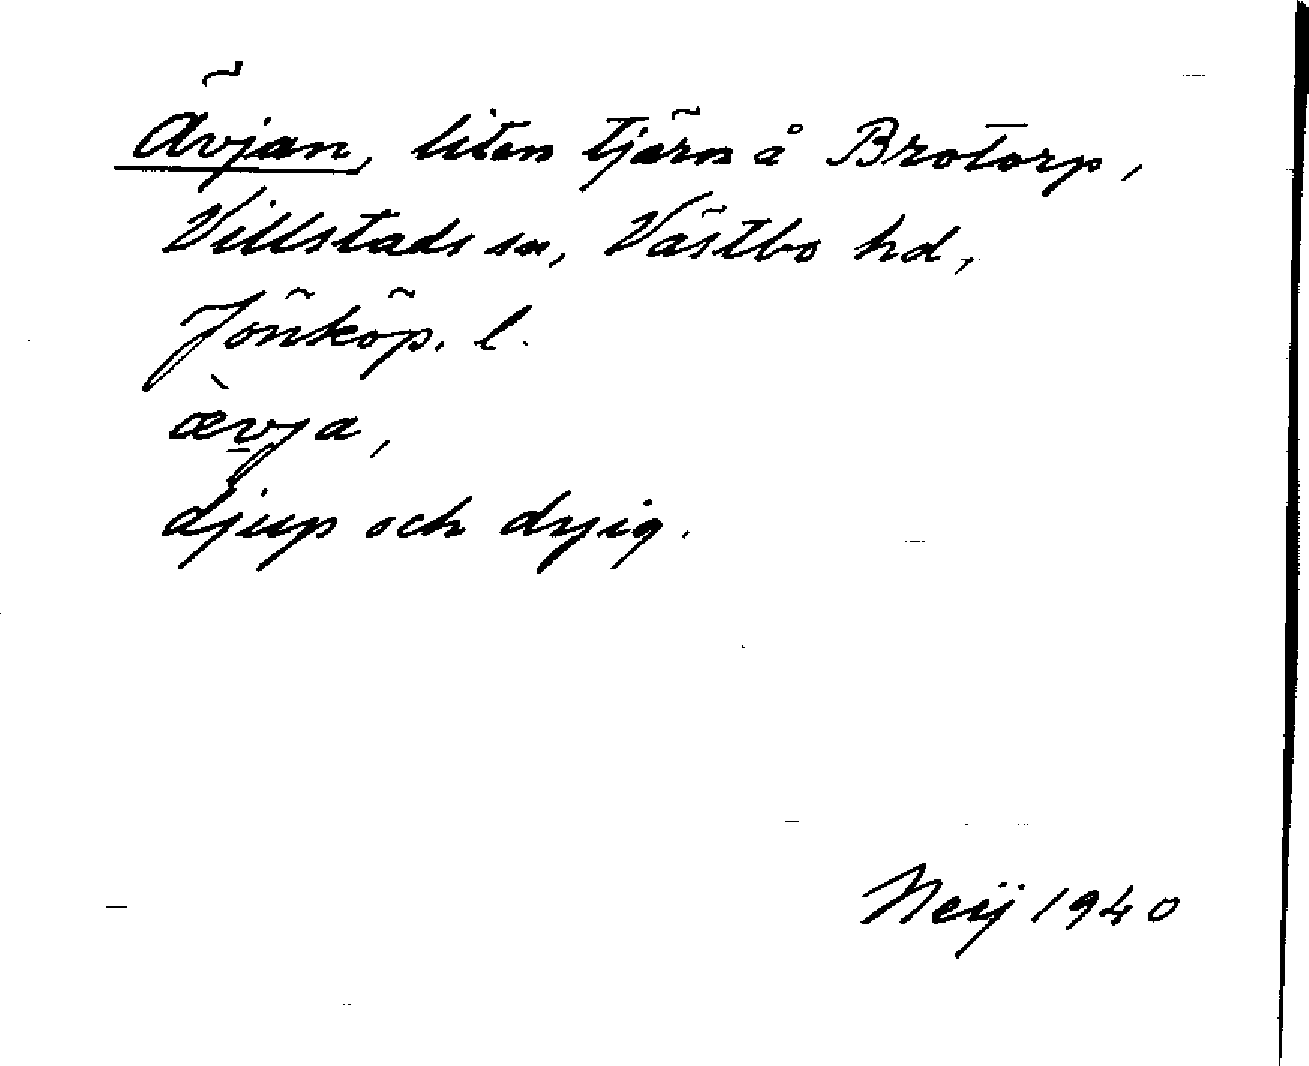 Ävjan, liten tjärn å Brotorp,
Villstads sn, Västbo hd,
Jönköp. l.
æ̀v̠ja,
djup och dyig.
Neij 1940